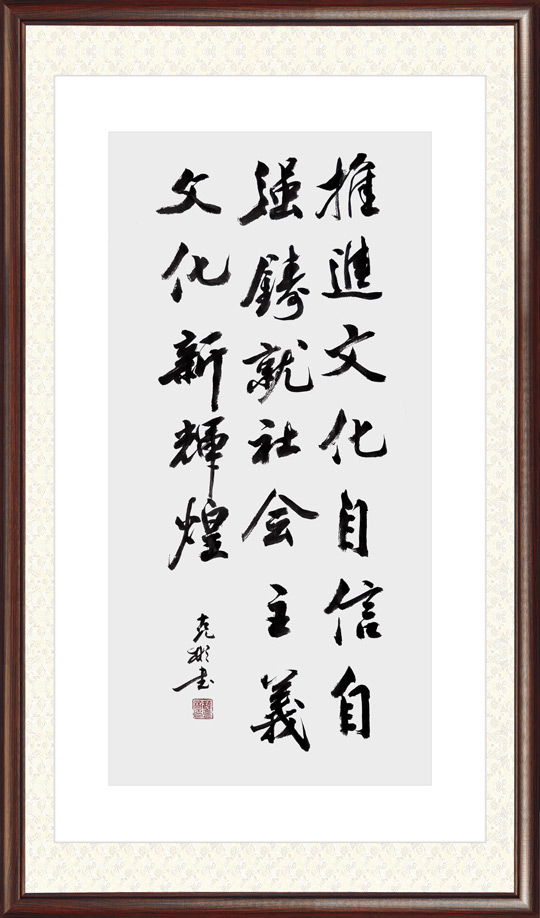 推進文化自信自
强鑄就社会主義
文化新輝煌
克彬书